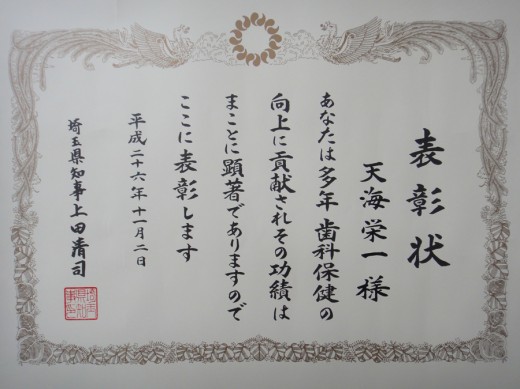 表彰状
天海栄一様
あなたは多年歯科保健の
向上に貢献されその功績は
まことに顕著でありますので
ここに表彰します
平成二十六年十一月二日
埼玉県知事上田清司